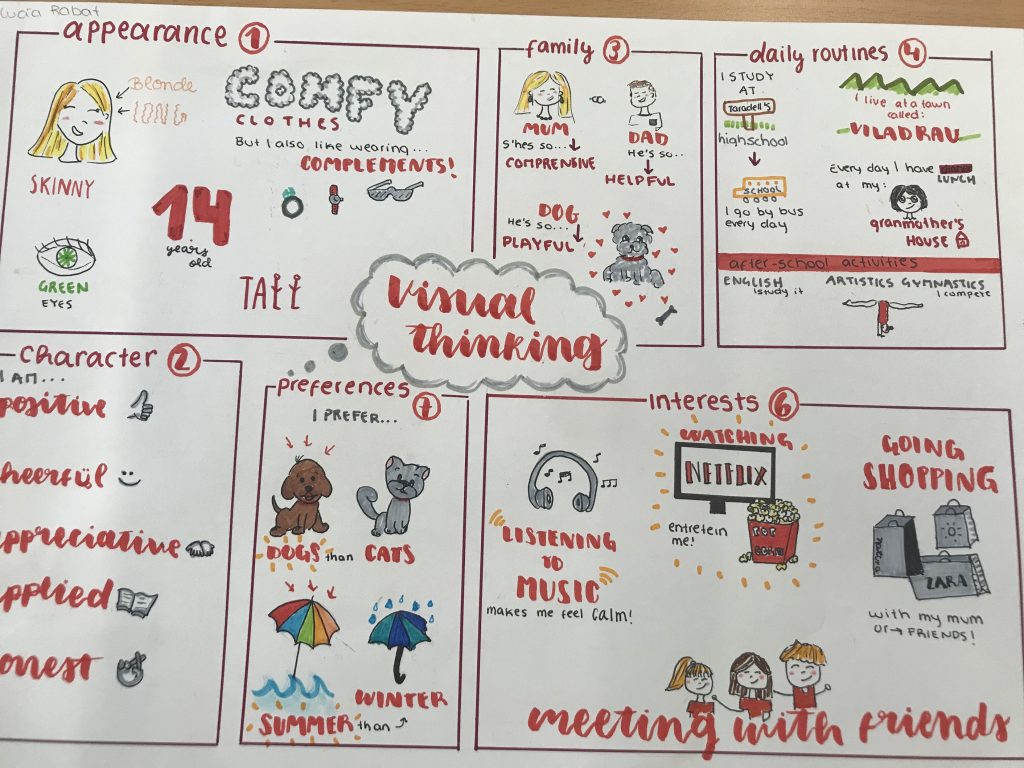 Lucia Rabat
appearance 1
Blonde
LONG
SKINNY
COMFY
CLOTHES
But I also like wearing...
COMPLEMENTS!
14
years
old
GREEN
EYES
TALL
Visual
thinking
family 3
MUM
S'hes so...
COMPRENSIVE
DAD
He's so..
HELPFUL
DOG
He's so...
PLAYFUL
daily routines 4
I STUDY
AT
Taradell's
highschool
SCHOOL
I go by bus
every day
I live at a town
called:
VILADRAU
Every day I have
LUNCH
at my:
granmother's
HOUSE
after-school activities
ENGLISH
I study it
ARTISTICS GYMNASTICS
I compete
character 2
I AM...
positive
heerfül
ppreciative
pplied
onest
preferences 7
I PREFER...
DOGS than CATS
WINTER
SUMMER than
interests 6
LISTENING
TO
MUSIC
makes me feel calm!
WATCHING
NETFLIX
entretein
me!
POP
CORN
GOING
SHOPPING
ZARA
with my mum
or → FRIENDS!
meeting with friends